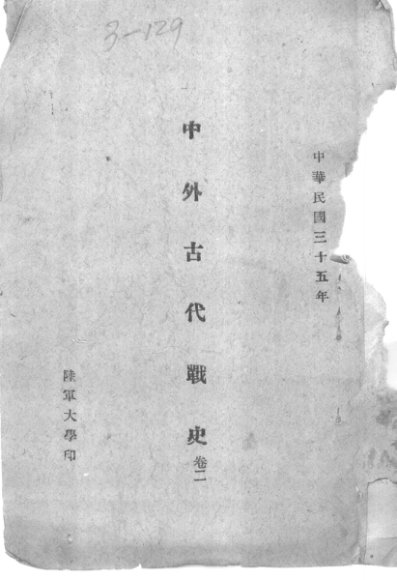 3-129
中華民國三十五年
中外古代戰史卷二
陸軍大學印